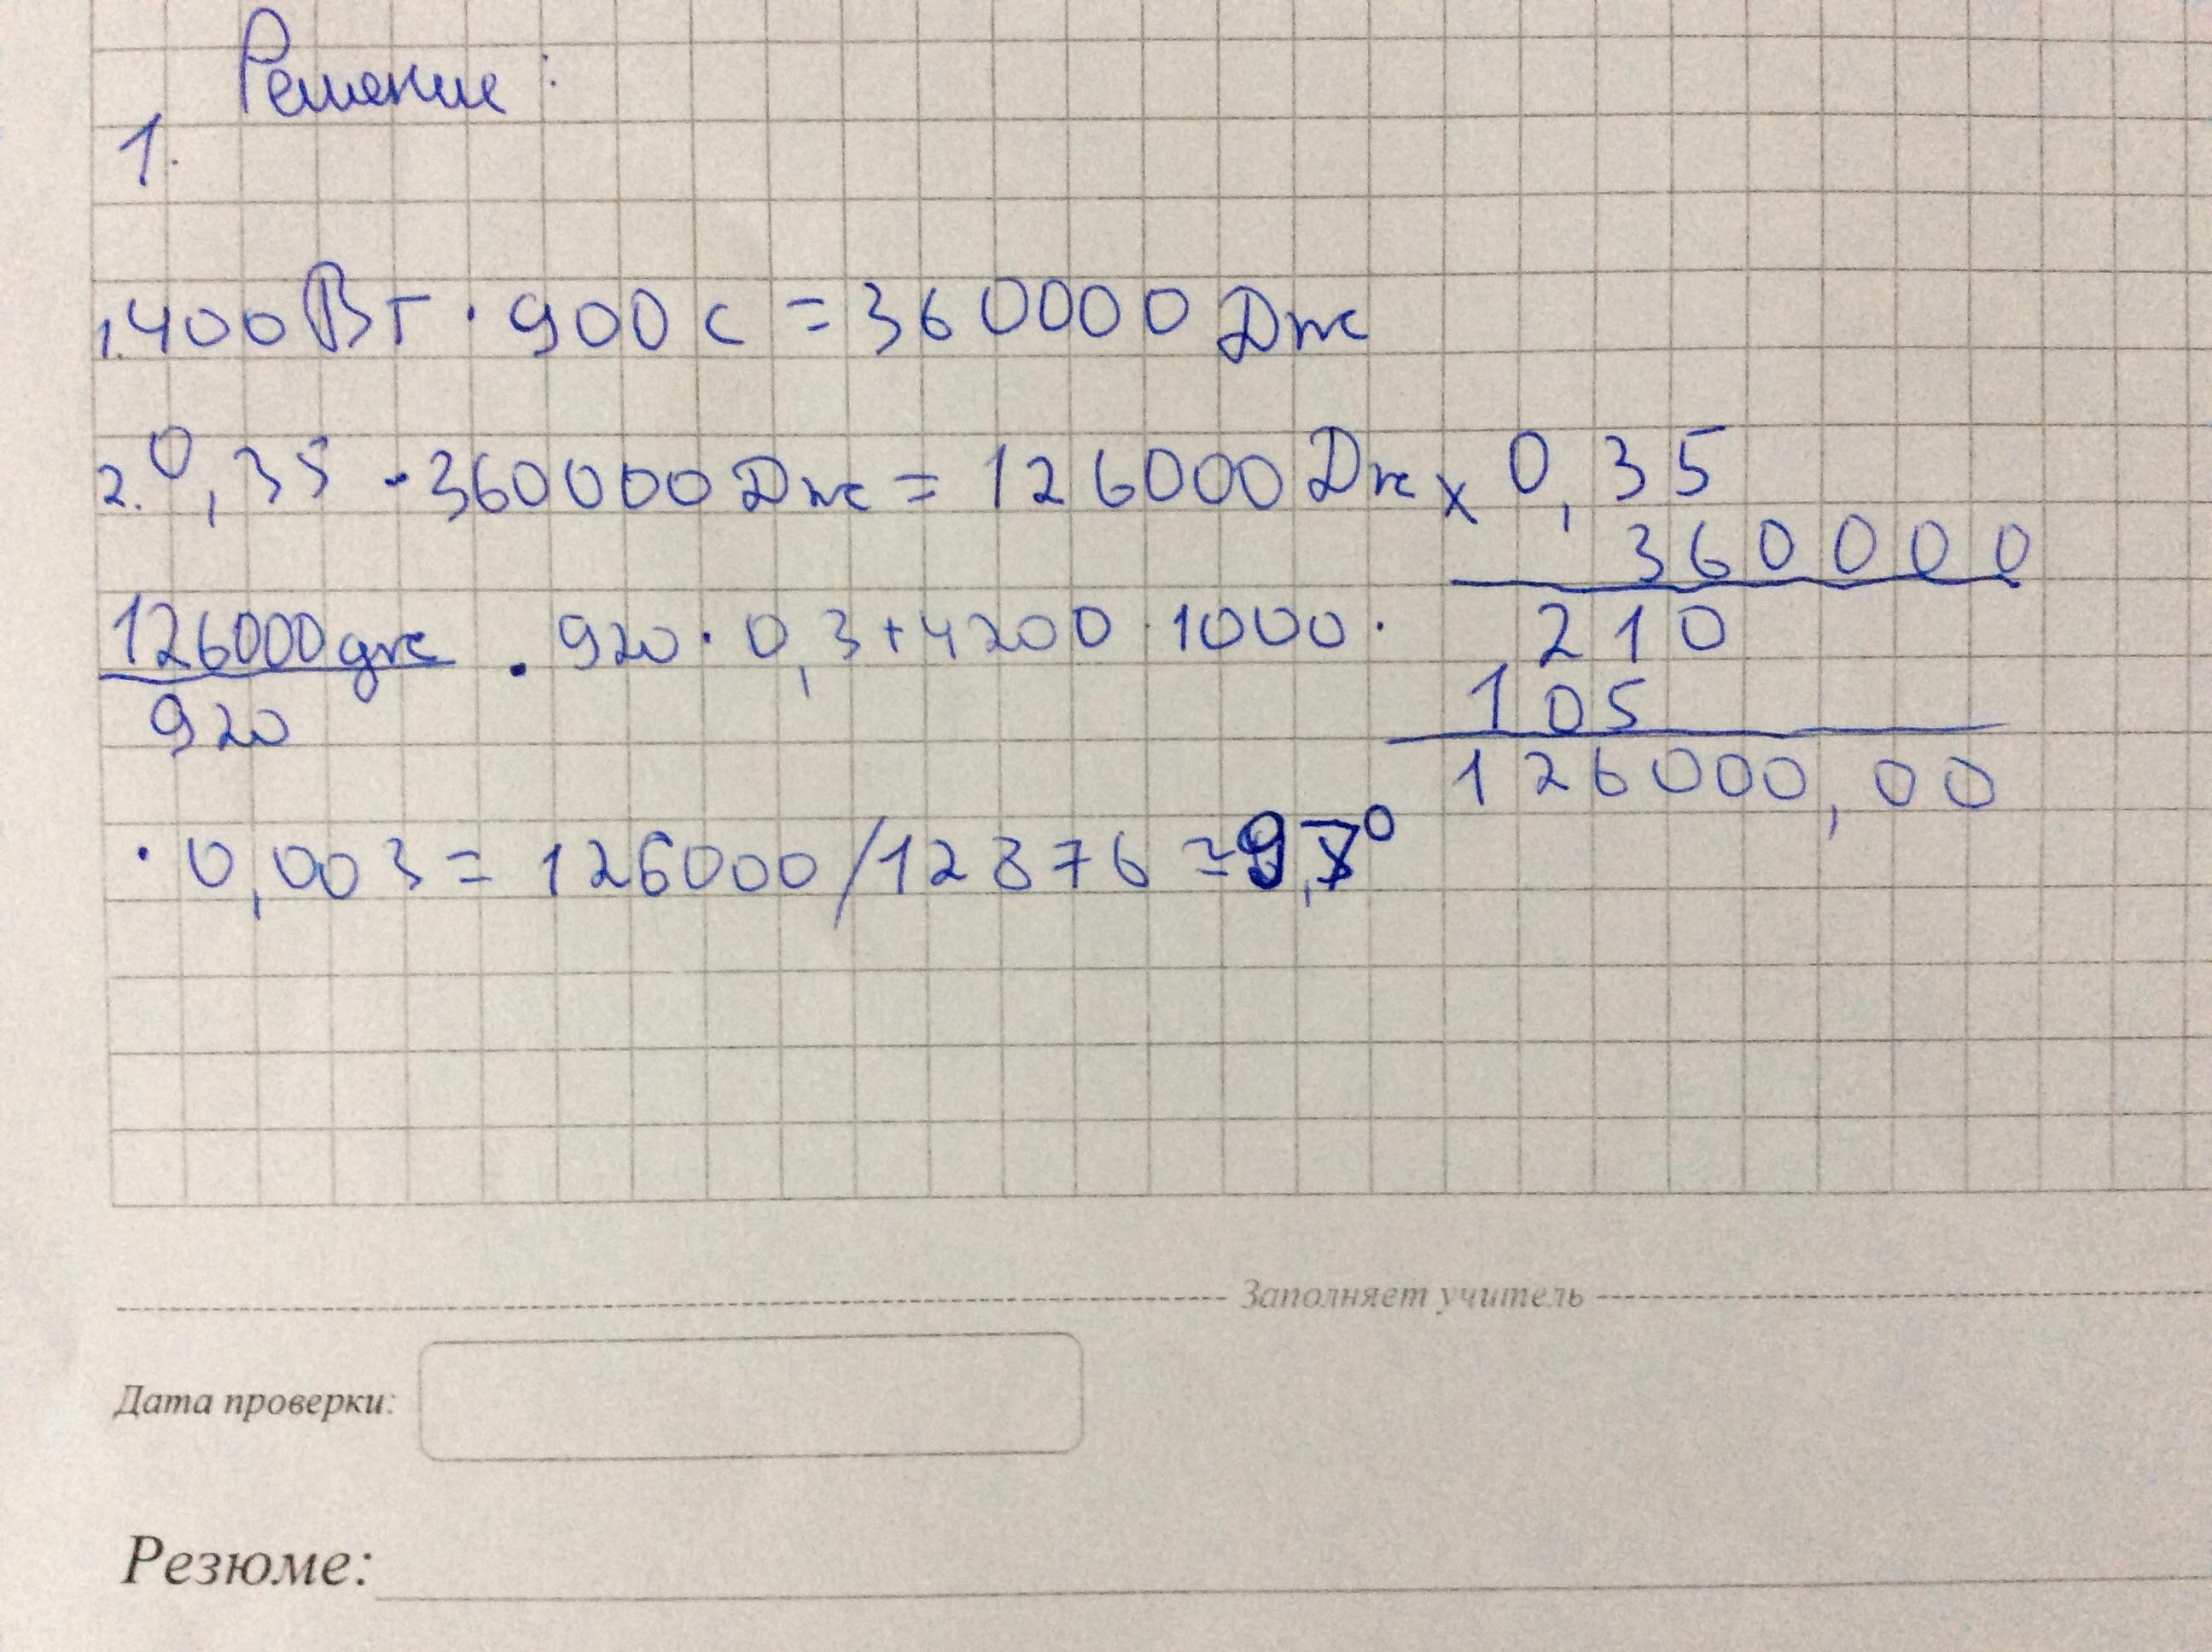 Решение:
1.
1. 400 Вт · 900 с = 360000 Дж
2. 0,35 · 360000 Дж = 126000 Дж
× 0,35
360000
210
105
126000,00
126000 дж / 920 · 920 · 0,3 + 4200 · 1000 ·
· 0,003 = 126000 / 12876 ≈ 9,7°
Заполняет учитель
Дата проверки:
Резюме: